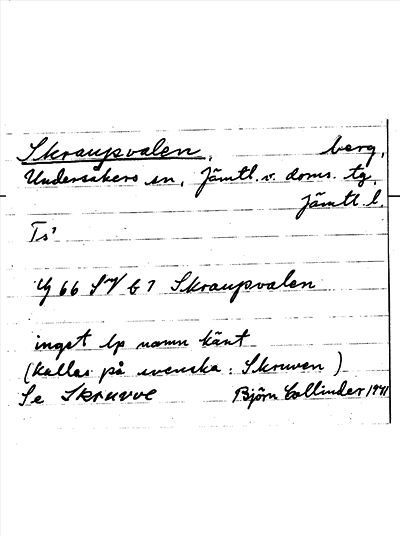 Skraupvalen, berg,
Undersåkers sn, Jämtl. v. doms. tg,
Jämtl. l.
Ts?
Ug 66 SV b 7 Skraupvalen
inget lp namn känt
(kallas på svenska: Skruven)
Se Skruvve Björn Collinder 1941